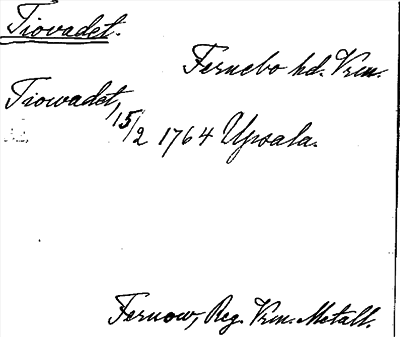 Tiovadet.
Fernebo hd. Vrm.
Tiowadet, 15/2 1764 Upsala.
Fernow, Reg. Vrm. Metall.